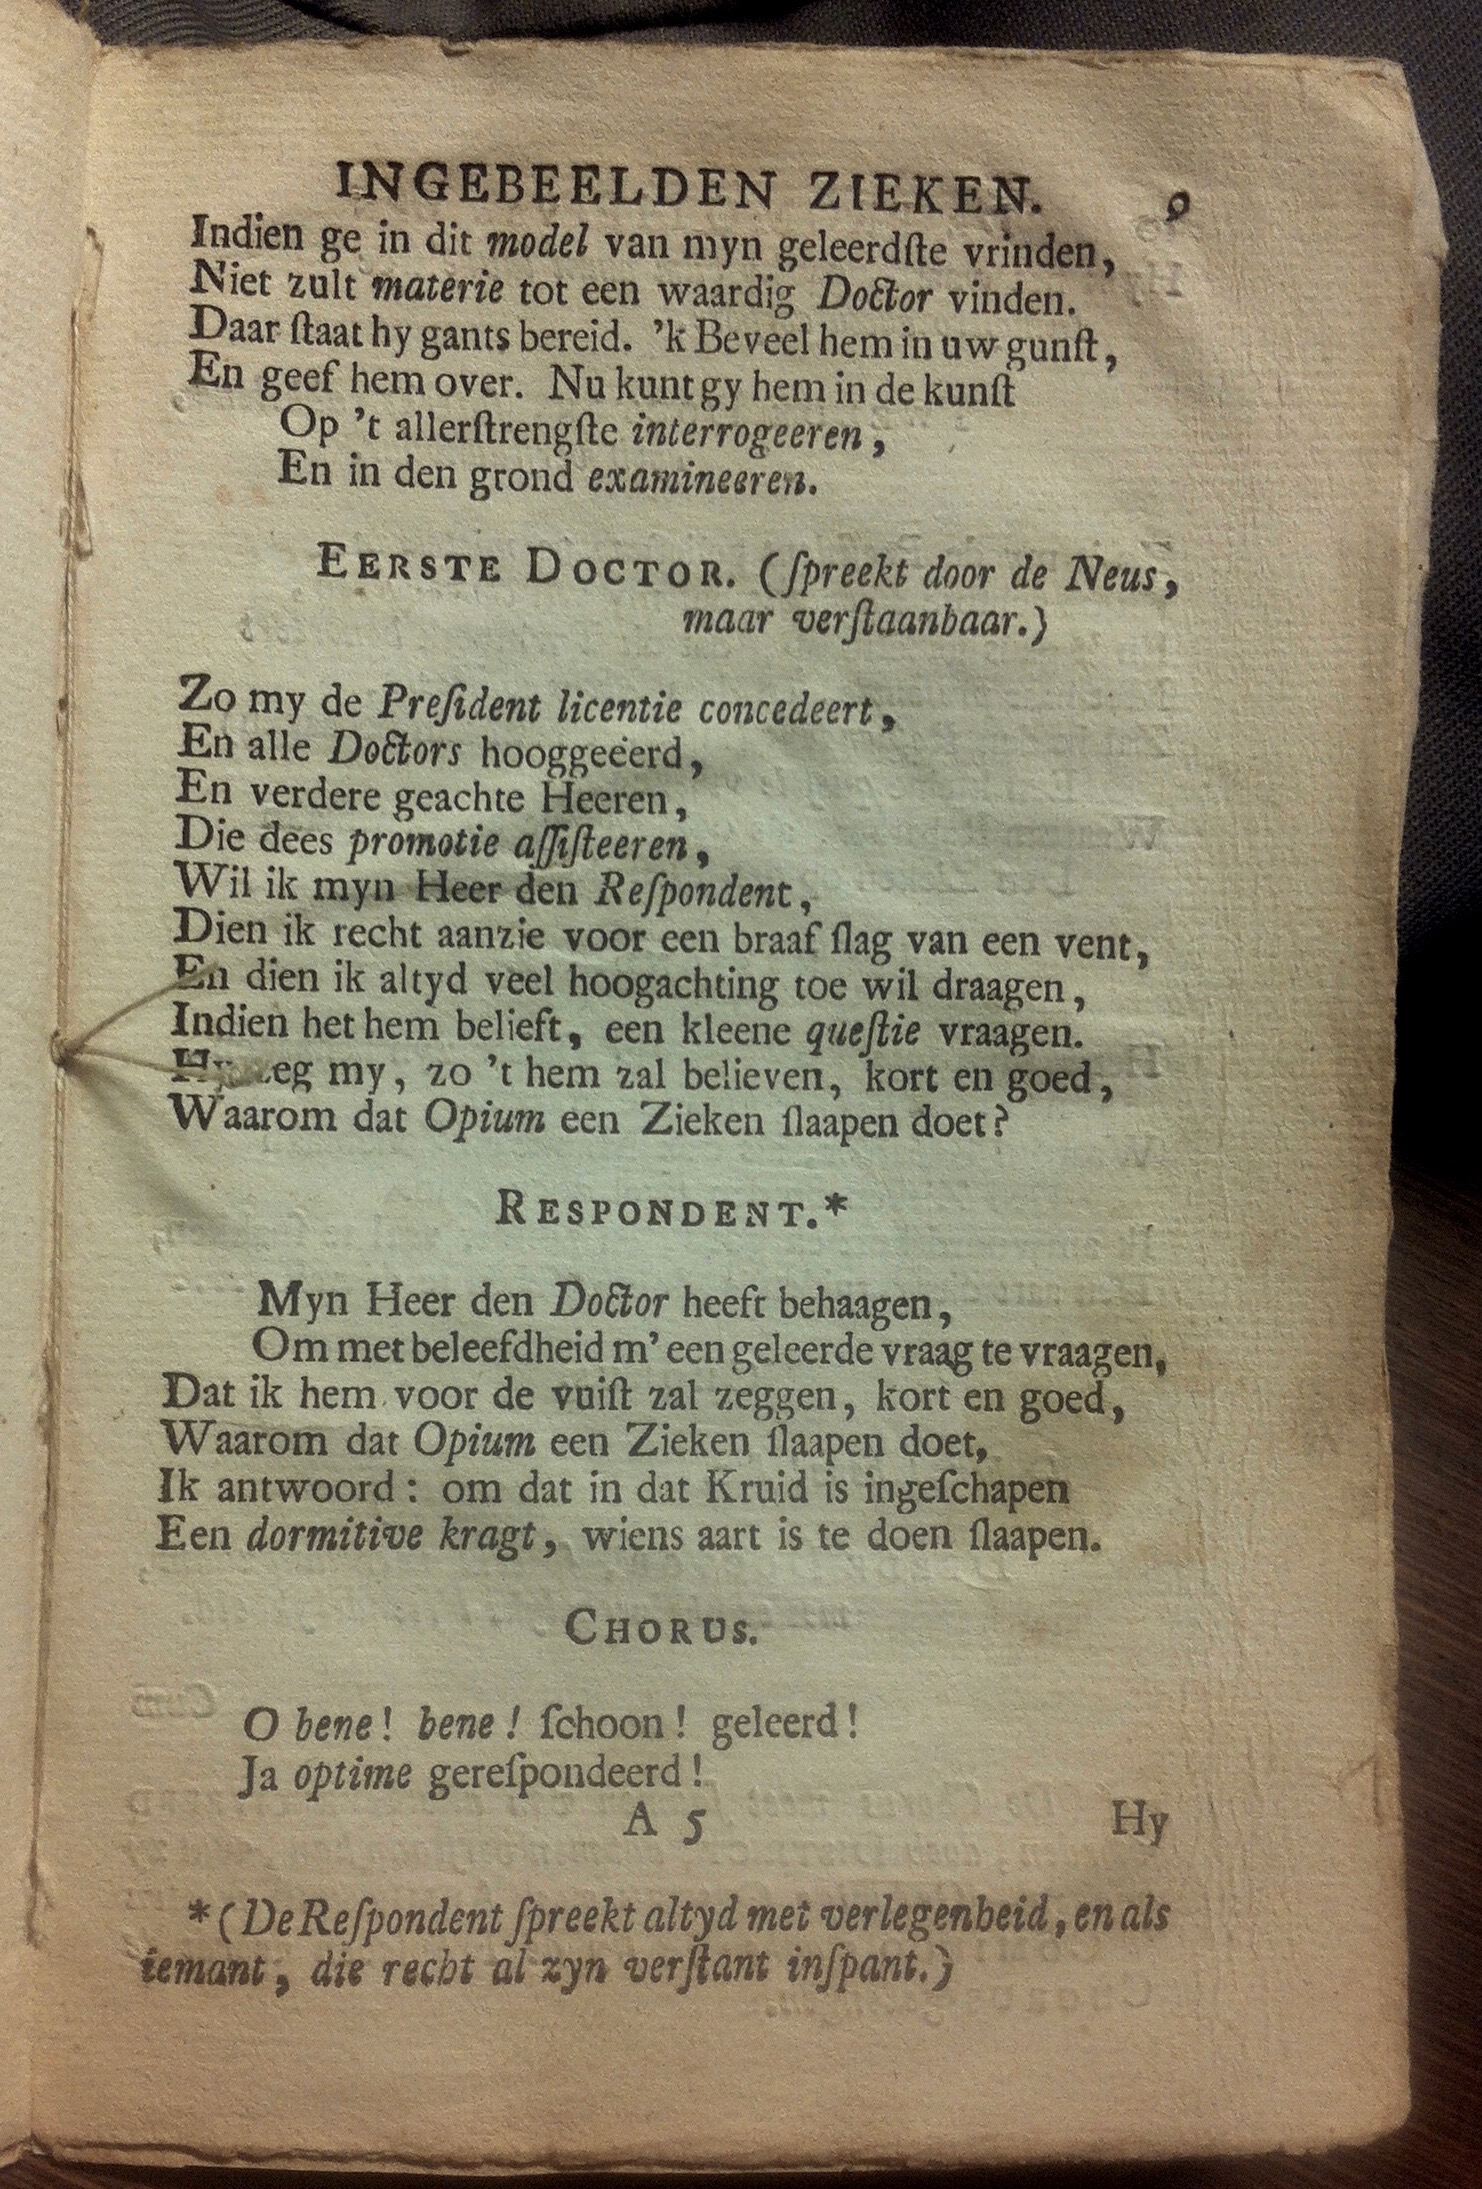 INGEBEELDEN ZIEKEN. 9
Indien ge in dit model van myn geleerdſte vrinden,
Niet zult materie tot een waardig Doctor vinden.
Daar ſtaat hy gants bereid. 'k Beveel hem in uw gunſt,
En geef hem over. Nu kunt gy hem in de kunſt
Op 't allerſtrengſte interrogeeren,
En in den grond examineeren.
EERSTE DOCTOR. (ſpreekt door de Neus,
maar verſtaanbaar.)
Zo my de Preſident licentie concedeert,
En alle Doctors hooggeëerd,
En verdere geachte Heeren,
Die dees promotie aſſiſteeren,
Wil ik myn Heer den Reſpondent,
Dien ik recht aanzie voor een braaf ſlag van een vent,
En dien ik altyd veel hoogachting toe wil draagen,
Indien het hem belieft, een kleene queſtie vraagen.
Hy zeg my, zo 't hem zal believen, kort en goed,
Waarom dat Opium een Zieken ſlaapen doet?
RESPONDENT.*
Myn Heer den Doctor heeft behaagen,
Om met beleefdheid m' een geleerde vraag te vraagen,
Dat ik hem voor de vuiſt zal zeggen, kort en goed,
Waarom dat Opium een Zieken ſlaapen doet,
Ik antwoord: om dat in dat Kruid is ingeſchapen
Een dormitive kragt, wiens aart is te doen ſlaapen.
CHORUS.
O bene! bene! ſchoon! geleerd!
Ja optime gereſpondeerd!
A 5 Hy
*(De Reſpondent ſpreekt altyd met verlegenheid, en als
iemant, die recht al zyn verſtant inſpant.)